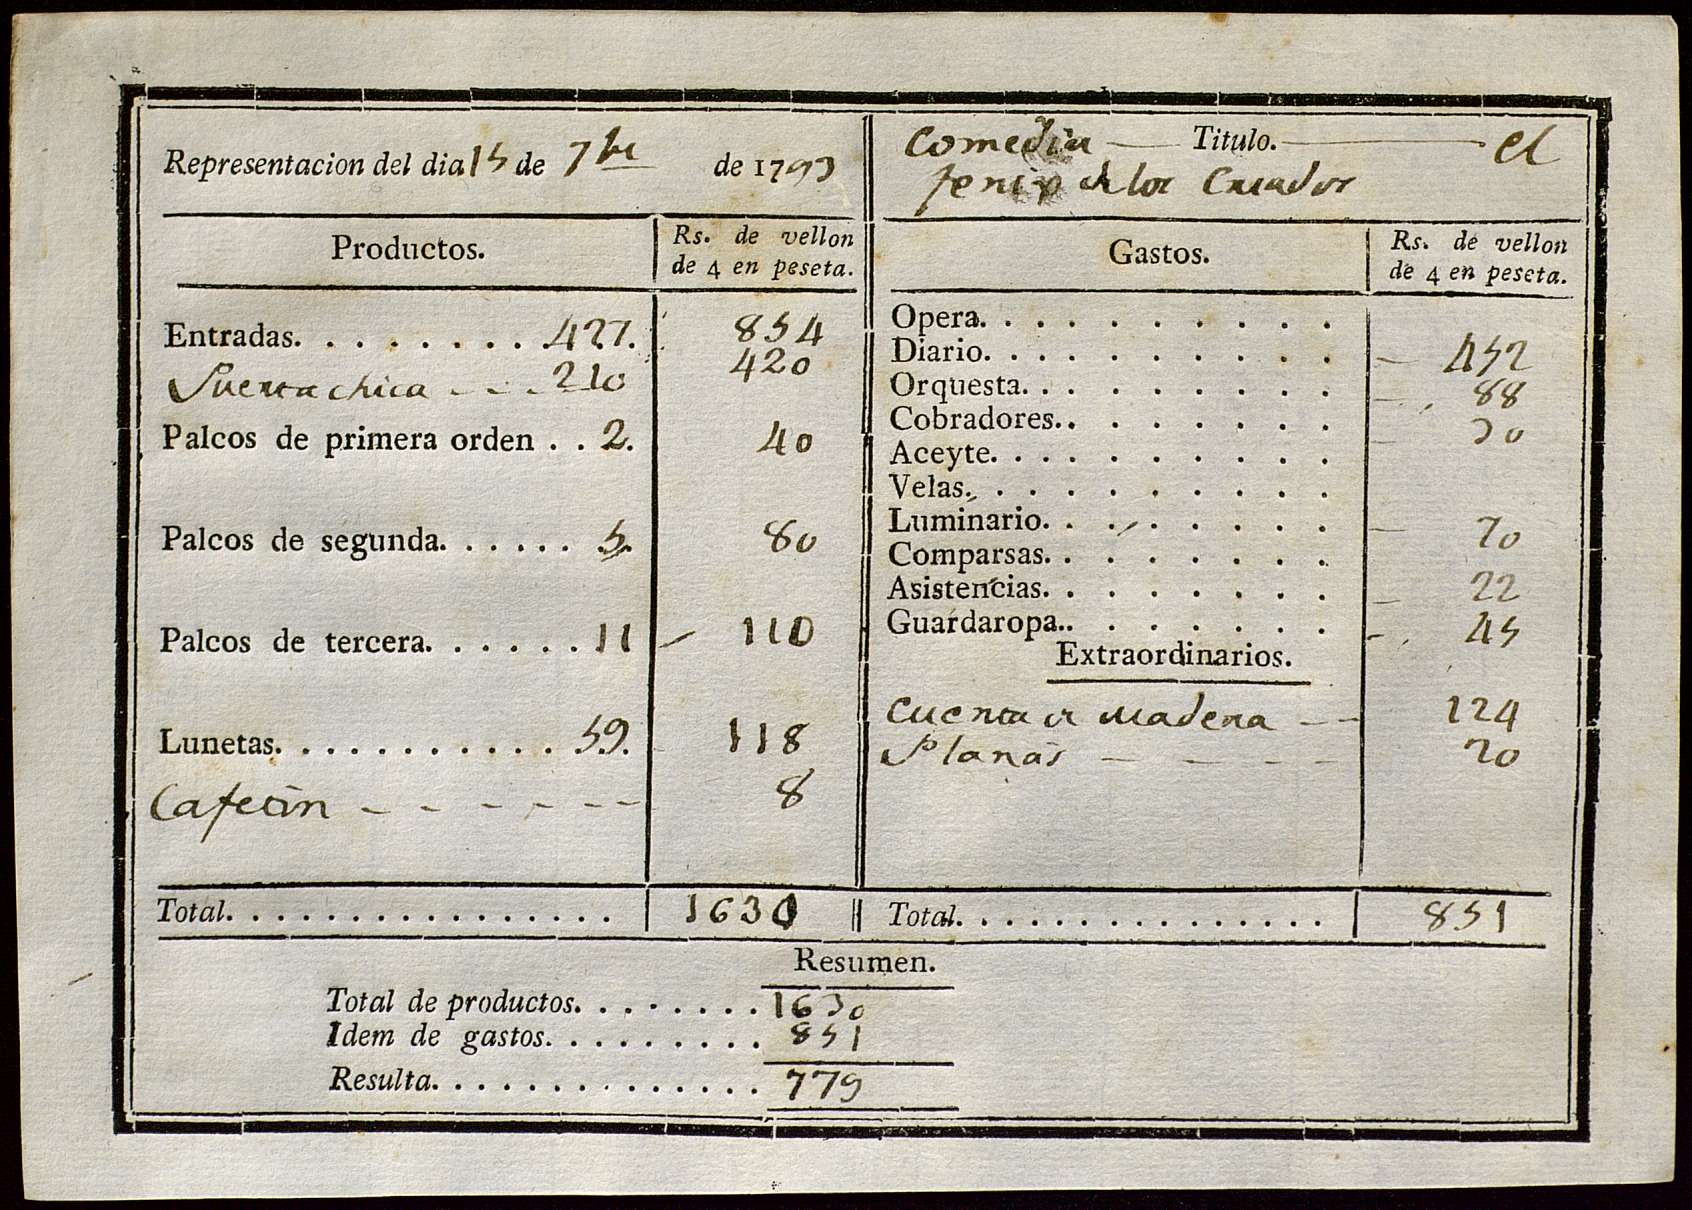 Representacion del dia 15 de 7bre de 1793
Productos.
Rs. de vellon
de 4 en peseta.
Entradas. . . . . . . . 427. 854
Puerta chica - - - 210 420
Palcos de primera orden . . 2. 40
Palcos de segunda. . . . . . 5. 80
Palcos de tercera. . . . . . 11 110
Lunetas. . . . . . . . . . . 59. 118
Cafetin - - - - - - 8
Total. . . . . . . . . . . . . . . . 1630
Comedia — Titulo. — el
fenix de los Criados
Gastos.
Rs. de vellon
de 4 en peseta.
Opera. . . . . . . . . .
Diario. . . . . . . . . . 452
Orquesta. . . . . . . . . 88
Cobradores.. . . . . . . 30
Aceyte. . . . . . . . . .
Velas. . . . . . . . . .
Luminario. . . . . . . . 70
Comparsas. . . . . . . .
Asistencias. . . . . . . . 22
Guardaropa.. . . . . . . 45
Extraordinarios.
Cuenta de Madera - - 124
Planas - - - - - 20
Total. . . . . . . . . . . . . . . 851
Resumen.
Total de productos. . . . . . . . 1630
Idem de gastos. . . . . . . . . 851
Resulta. . . . . . . . . . . . . . 779